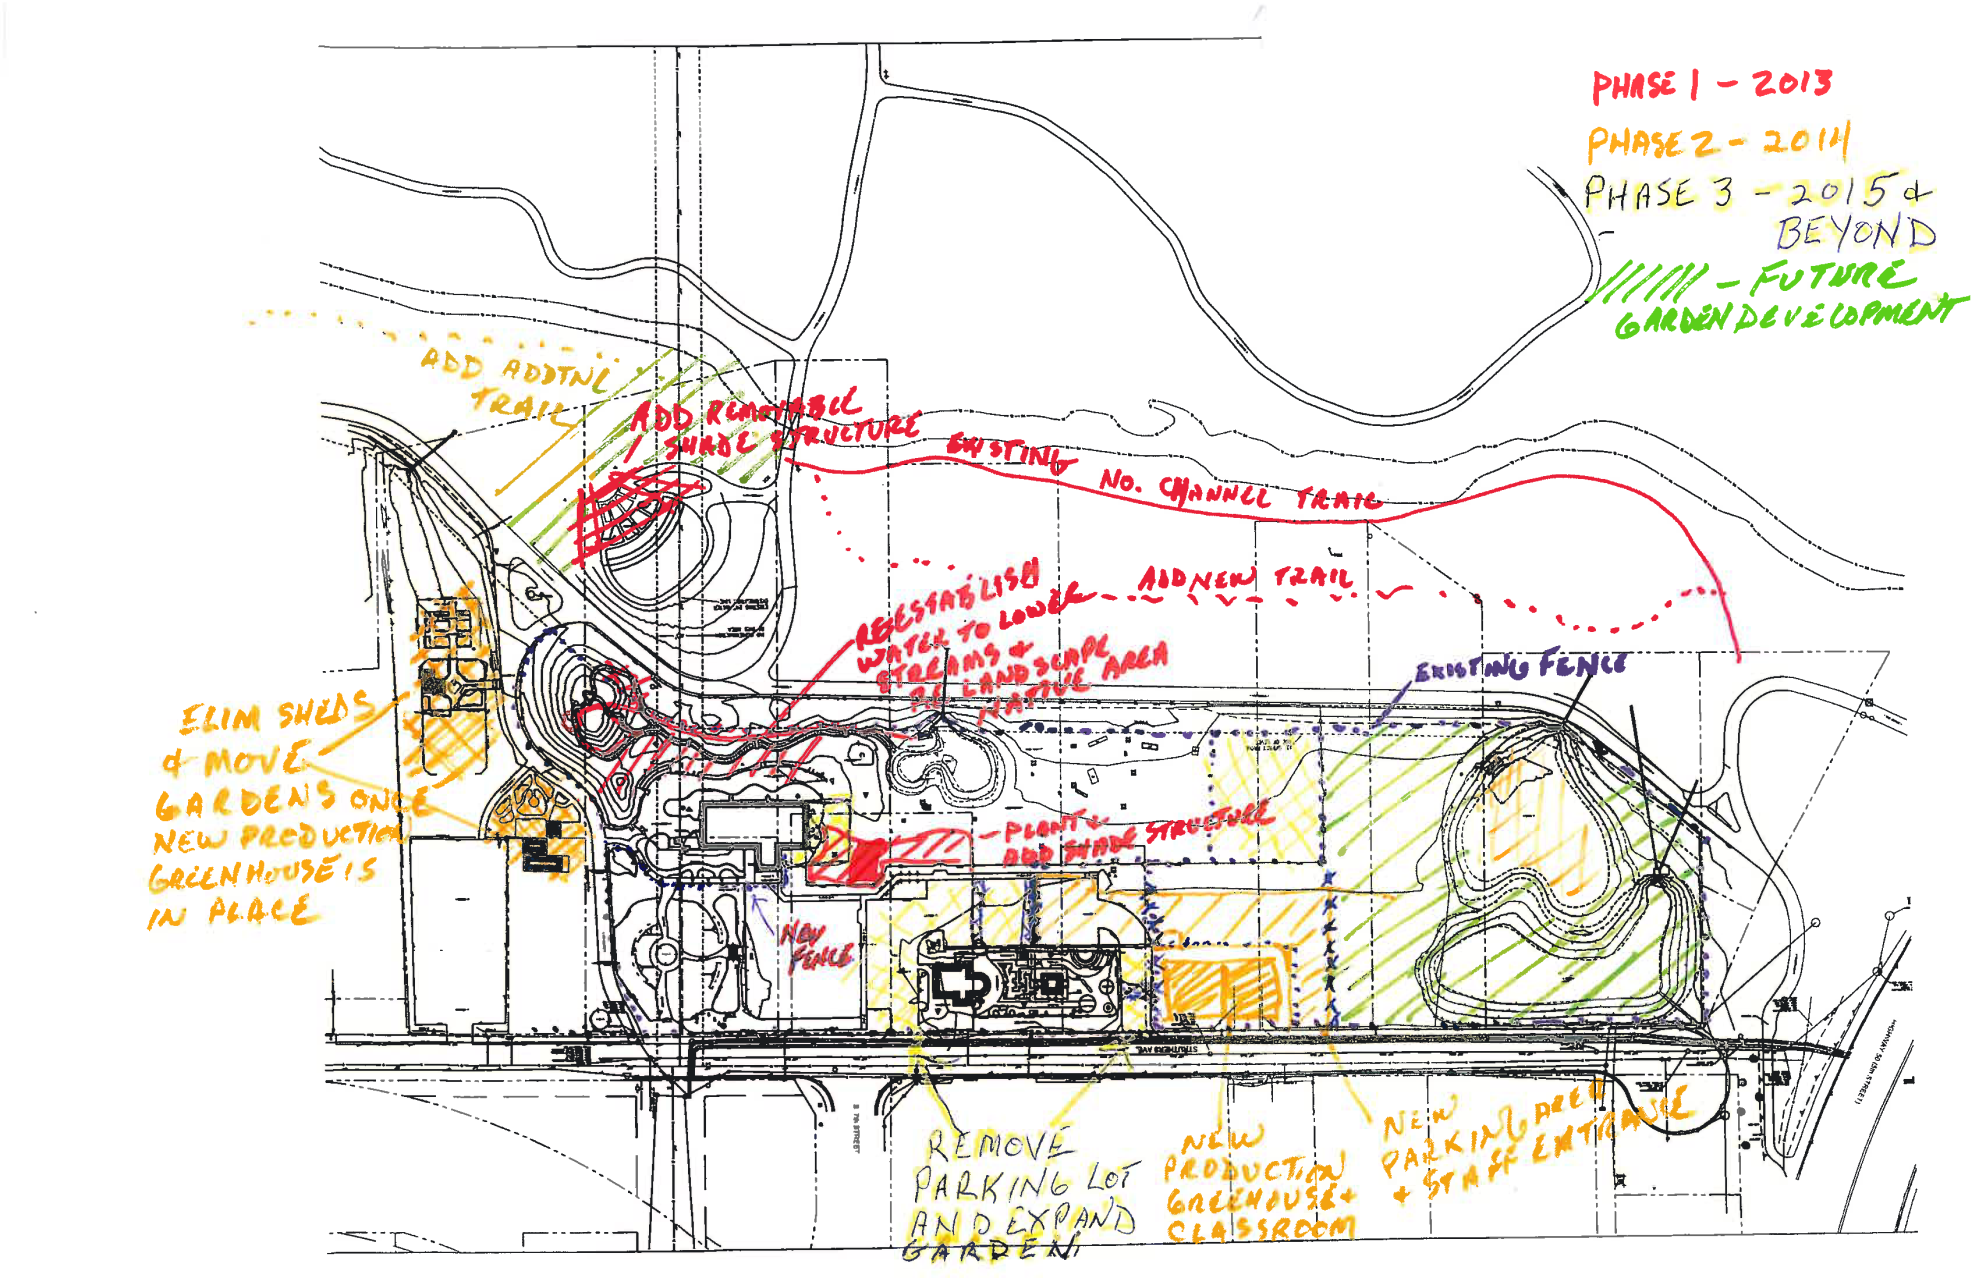 PHASE 1 - 2013
PHASE 2 - 2014
PHASE 3 - 2015 &
BEYOND
////// - FUTURE
GARDEN DEVELOPMENT
ADD ADDTNL
TRAIL
ADD REMOVABLE
SHADE STRUCTURE
EXISTING NO. CHANNEL TRAIL
ADD NEW TRAIL
REESTABLISH
WATER TO LOWER
STREAMS &
RE LANDSCAPE
NATIVE AREA
EXISTING FENCE
ELIM SHEDS
& MOVE
GARDENS ONCE
NEW PRODUCTION
GREENHOUSE IS
IN PLACE
PLANT &
ADD SHADE STRUCTURE
NEW
FENCE
STRUTHERS AVE
HIGHWAY 50 (5th STREET)
S. 7th STREET
REMOVE
PARKING LOT
AND EXPAND
GARDEN
NEW
PRODUCTION
GREEHOUSE +
CLASSROOM
NEW
PARKING AREA
+ STAFF ENTRANCE